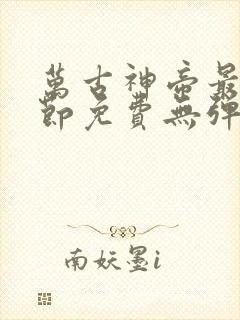 萬古神帝最
節免費無彈
南妖墨i